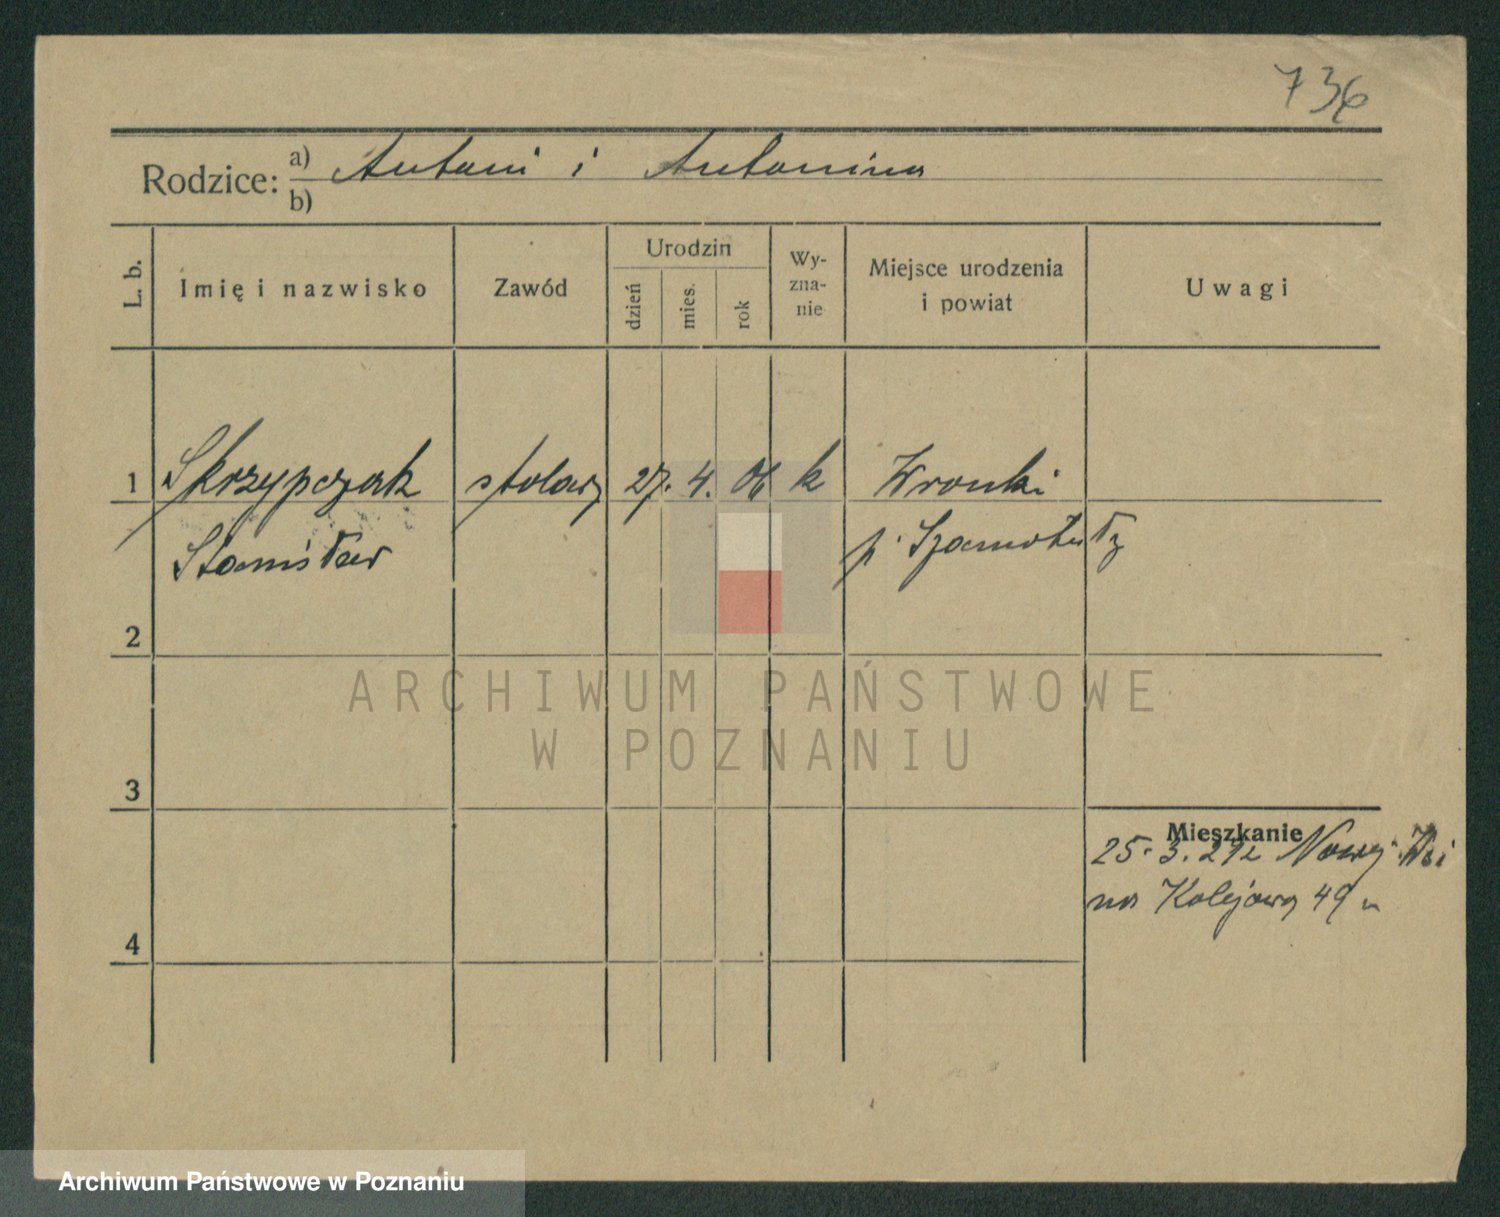 736
Rodzice: a) Antoni i Antonina
b)
L. b.
Imię i nazwisko
Zawód
Urodzin
dzień
mies.
rok
Wy-
zna-
nie
Miejsce urodzenia
i powiat
Uwagi
1 Skrzypczak stolarz 27. 4. 06 k Wronki
Stanisław p. Szamotuły
2
ARCHIWUM PAŃSTWOWE
W POZNANIU
3
Mieszkanie
25. 3. z Nowej Wsi
na Kolejową 49
4
Archiwum Państwowe w Poznaniu